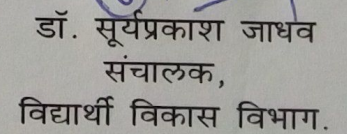 डॉ. सूर्यप्रकाश जाधव
संचालक,
विद्यार्थी विकास विभाग.